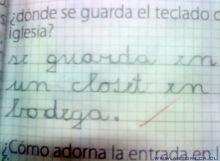 ¿dónde se guarda el teclado
iglesia?
se guarda en
un closet en
bodega.
¿Cómo adorna la entrada en l